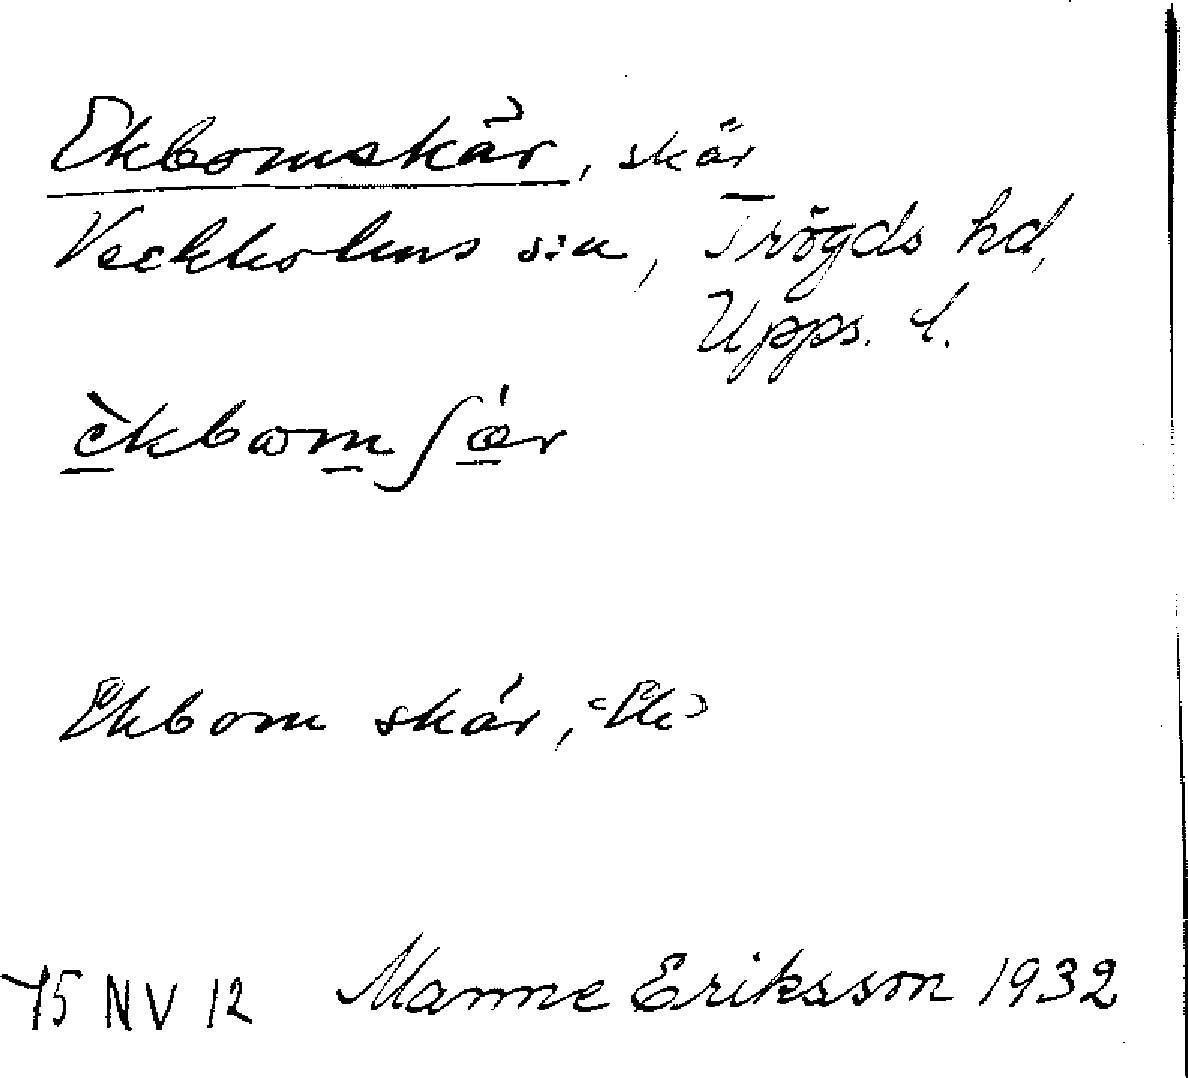 Ekbomskär, skär
Veckholms s:n, Trögds hd,
Upps. l.
èkbωm ʃǽr
Ekbom skär, <Ek>
75 NV 12 Manne Eriksson 1932